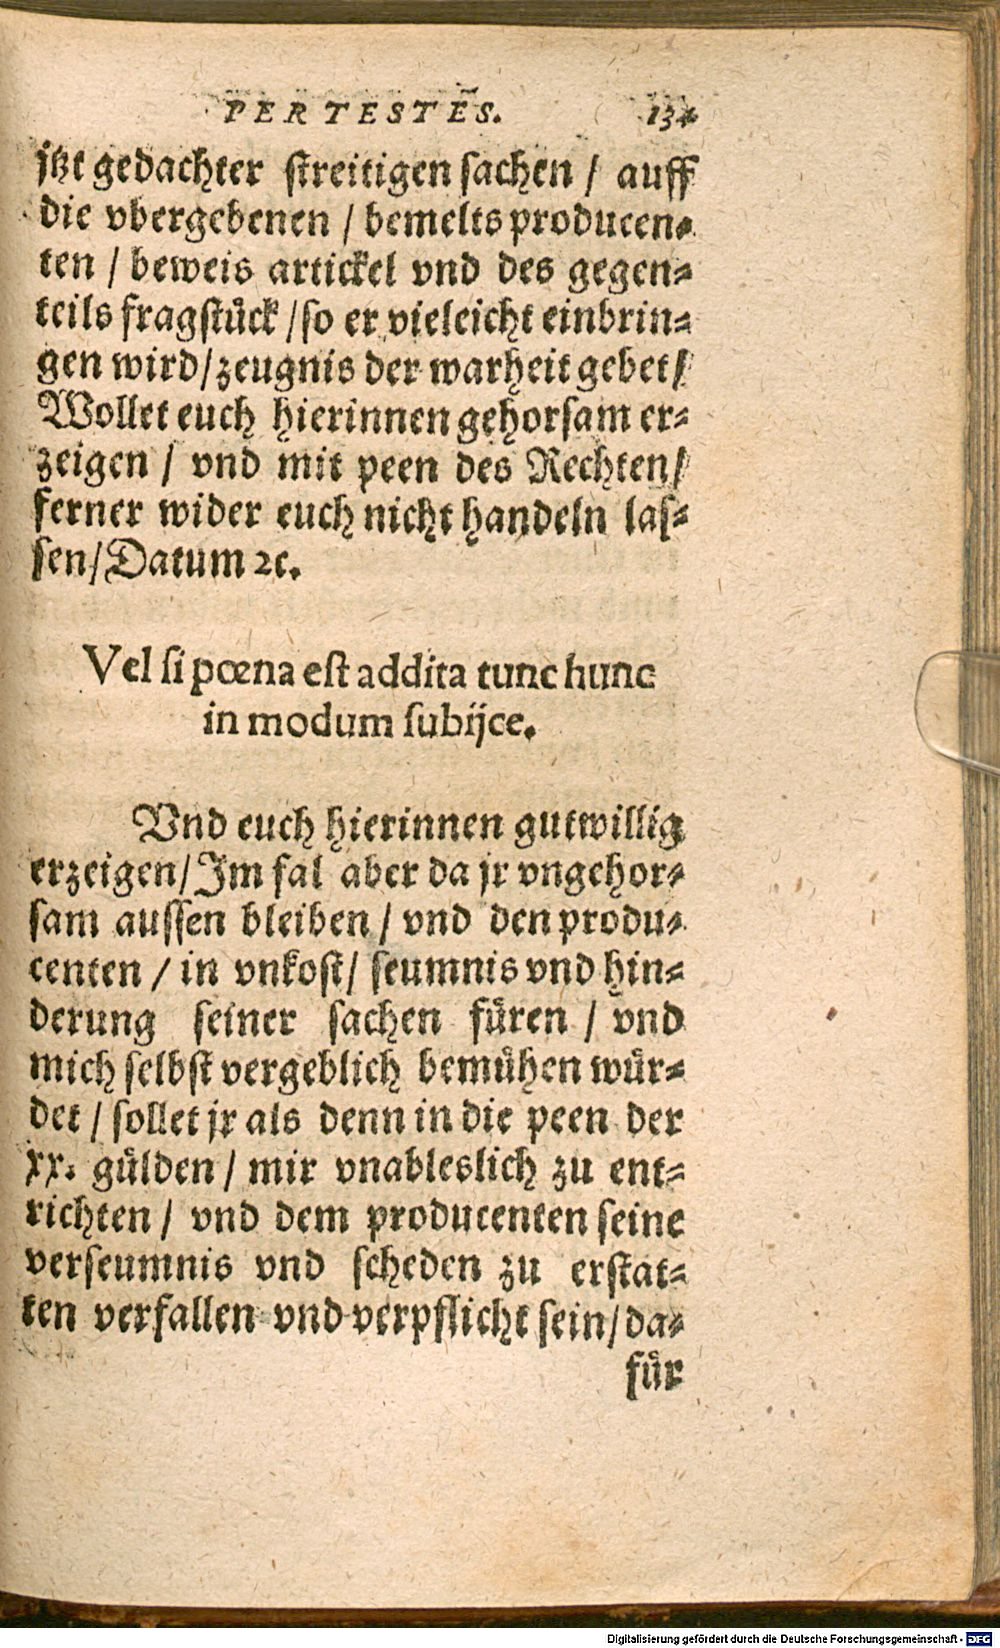 PER TESTES. 134
jtzt gedachter streitigen sachen / auff
die vbergebenen / bemelts producen⸗
ten / beweis artickel vnd des gegen⸗
teils fragstuͤck / so er vieleicht einbrin⸗
gen wird / zeugnis der warheit gebet /
Wollet euch hierinnen gehorsam er⸗
zeigen / vnd mit peen des Rechten /
ferner wider euch nicht handeln las⸗
sen / Datum ꝛc.
Vel si pœna est addita tunc hunc
in modum subijce.
Vnd euch hierinnen gutwillig
erzeigen / Im fal aber da jr vngehor⸗
sam aussen bleiben / vnd den produ⸗
centen / in vnkost / seumnis vnd hin⸗
derung seiner sachen fuͤren / vnd
mich selbst vergeblich bemuͤhen wuͤr⸗
det / sollet jr als denn in die peen der
xx. guͤlden / mir vnableslich zu ent⸗
richten / vnd dem producenten seine
verseumnis vnd scheden zu erstat⸗
ten verfallen vnd verpflicht sein / da⸗
fuͤr
Digitalisierung gefördert durch die Deutsche Forschungsgemeinschaft - DFG